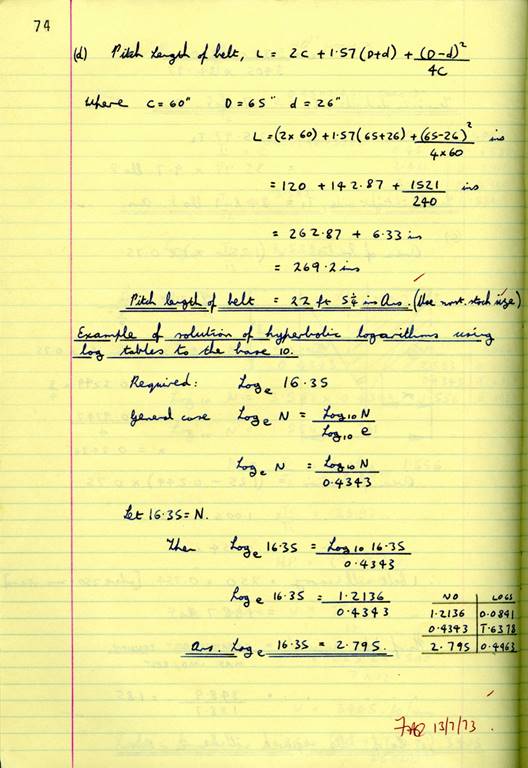 74
(d) Pitch Length of belt, L = 2C + 1.57 (D+d) + (D-d)²/4C
where C = 60" D = 65" d = 26"
L = (2 x 60) + 1.57 (65+26) + (65-26)²/4x60 ins
= 120 + 142.87 + 1521/240 ins
= 262.87 + 6.33 ins
= 269.2 ins
Pitch length of belt = 22 ft 5¼ ins Ans. (Use nort. stock size)
Example of solution of hyperbolic logarithms using
log tables to the base 10.
Required: Log e 16.35
General case Log e N = Log10 N/Log10 e
Log e N = Log10 N/0.4343
Let 16.35 = N.
Then Log e 16.35 = Log10 16.35/0.4343
Log e 16.35 = 1.2136/0.4343
Ans. Log e 16.35 = 2.795.
NO LOGS
1.2136 0.0841
0.4343 1̄.6378
2.795 0.4463
13/7/73